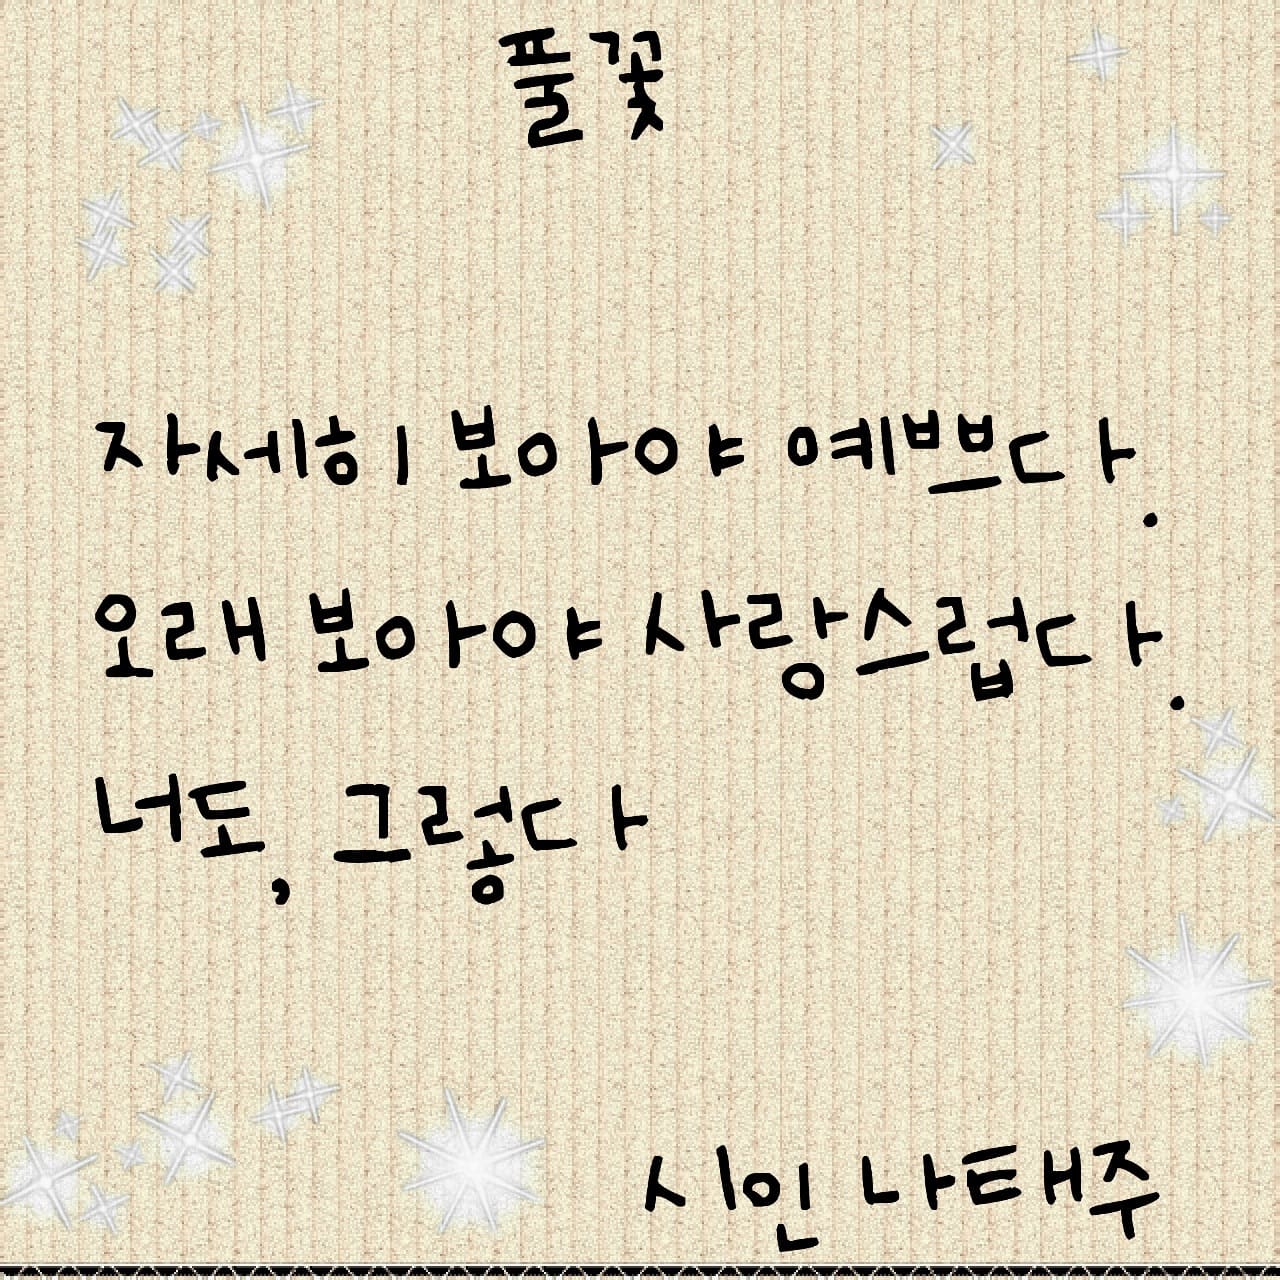 풀꽃
자세히 보아야 예쁘다.
오래 보아야 사랑스럽다.
너도, 그렇다
시인 나태주